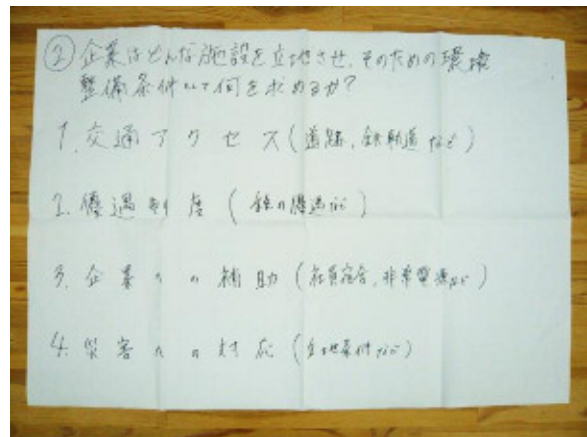 ② 企業はどんな施設を立地させ、そのための環境
整備条件として何を求めるか?
1. 交通アクセス(道路、鉄軌道など)
2. 優遇制度(税の優遇など)
3. 企業への補助(社員宿舎、非常電源など)
4. 災害への対応(立地条件など)